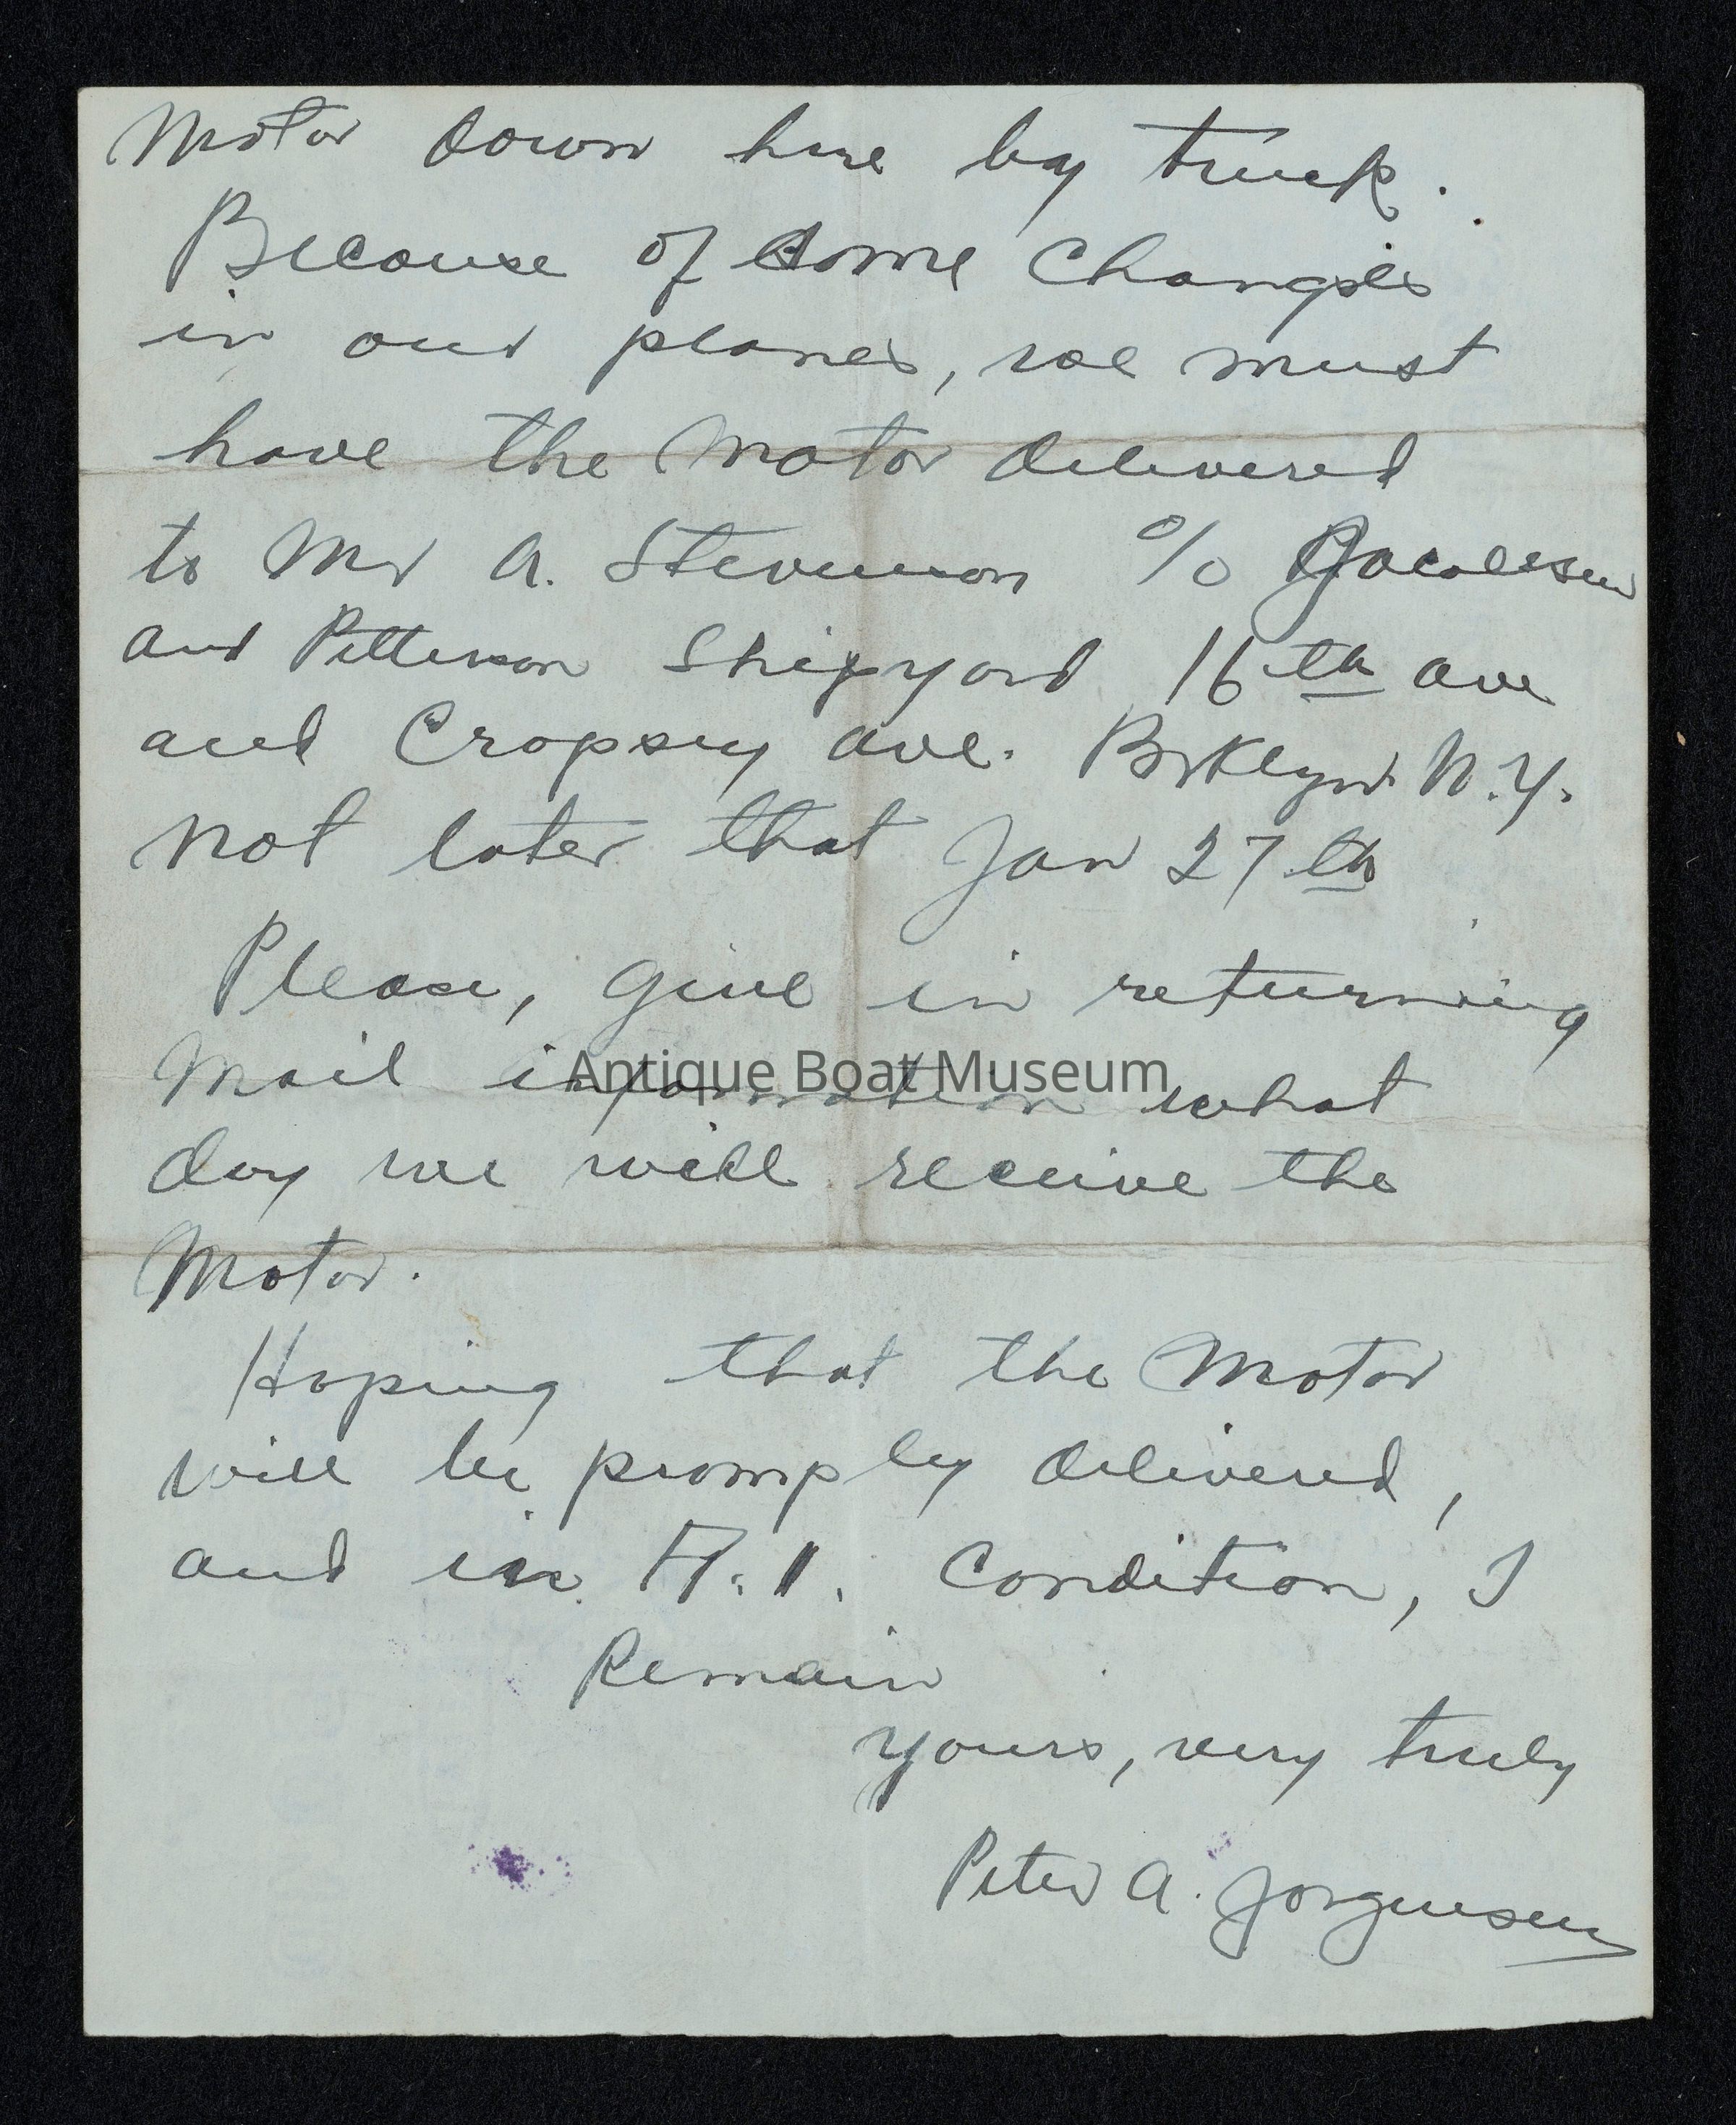 Motor down here by truck.
Because of some changes
in our planes, we must
have the Motor delivered
to Mr A. Stevenson % Jacobsen
and Petterson Shipyard 16th ave
and Cropsey ave. Brklyn. N.Y.
not later that Jan 27th
Please, give in returning
Mail information what
day we will receive the
Motor.
Hoping that the Motor
will be promply delivered,
and in A.1. Condition, I
Remain
yours, very truly
Peter A. Jorgensen
Antique Boat Museum